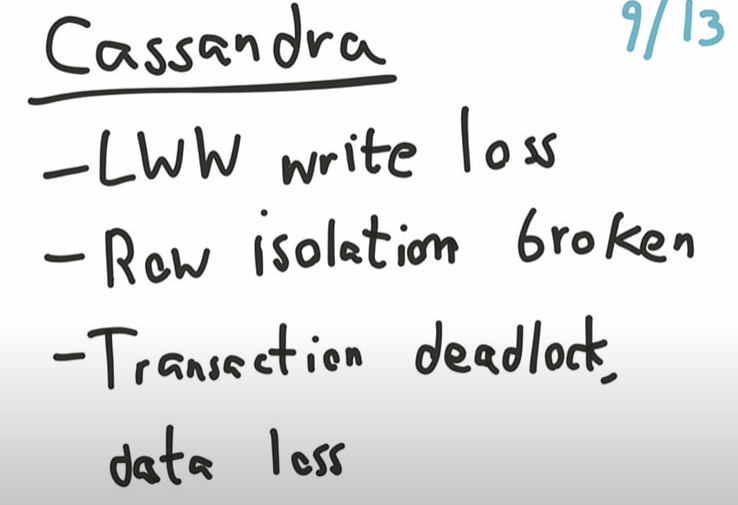 Cassandra 9/13
- LWW write loss
- Row isolation broken
- Transaction deadlock,
data loss